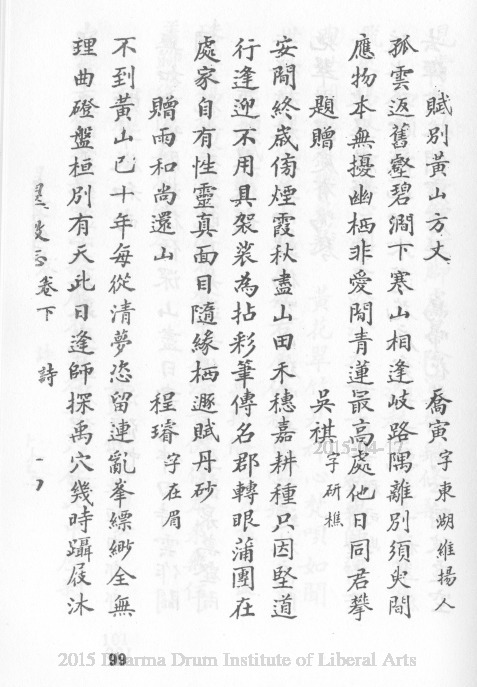 賦別黃山方丈 喬寅字東湖維揚人
孤雲返舊壑碧澗下寒山相逢岐路隅離別須臾間
應物本無擾幽栖非愛閒青蓮最高處他日同君攀
題贈 吳祺字研樵
安閒終歲傍煙霞秋盡山田禾穗嘉耕種只因堅道
行逢迎不用具袈裟為拈彩筆傳名郡轉眼蒲團在
處家自有性靈真面目隨緣栖遯賦丹砂
贈雨和尚還山 程璿字在眉
不到黃山已十年每從清夢恣留連亂峯縹緲全無
理曲磴盤桓別有天此日逢師探禹穴幾時躡屐沐
卷下 詩
2015-04-17
99
2015 Dharma Drum Institute of Liberal Arts